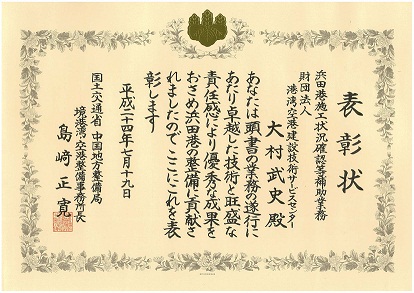 表彰状
浜田港施工状況確認等補助業務
財団法人
港湾空港建設技術サービスセンター
大村武史殿
あなたは頭書の業務の遂行に
あたり卓越した技術と旺盛な
責任感により優秀な成果を
おさめ浜田港の整備に貢献さ
れましたのでここにこれを表
彰します
平成二十四年七月十九日
国土交通省 中国地方整備局
境港湾・空港整備事務所長
島崎正寛